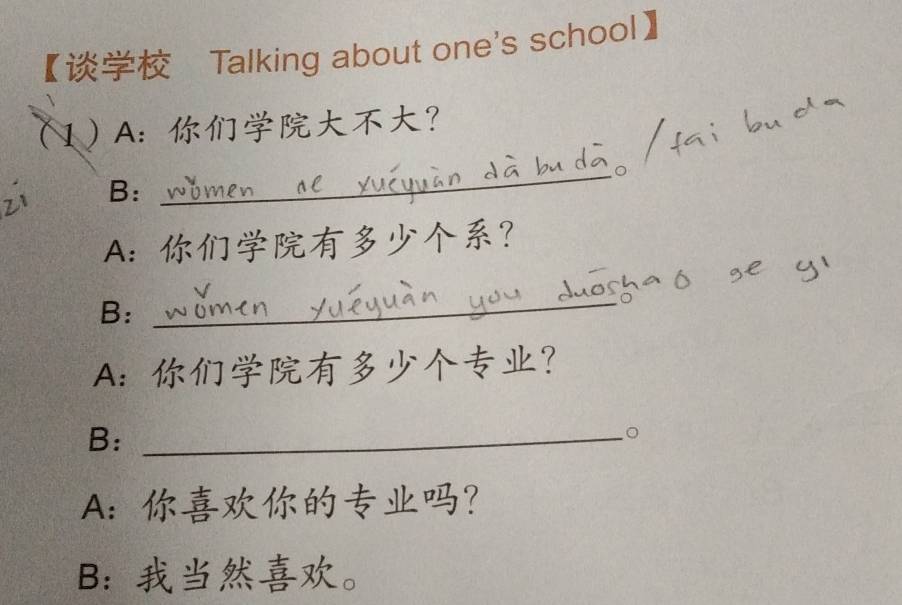 【谈学校 Talking about one's school】
(1) A: 你们学院大不大?
B: wǒmen de xuéyuàn dà bu dà。/tai bu da
zì
A: 你们学院有多少个系?
B: wǒmen xuéyuàn you duōshao ge yi
A: 你们学院有多少个专业?
B: 。
A: 你喜欢你的专业吗?
B: 我当然喜欢。